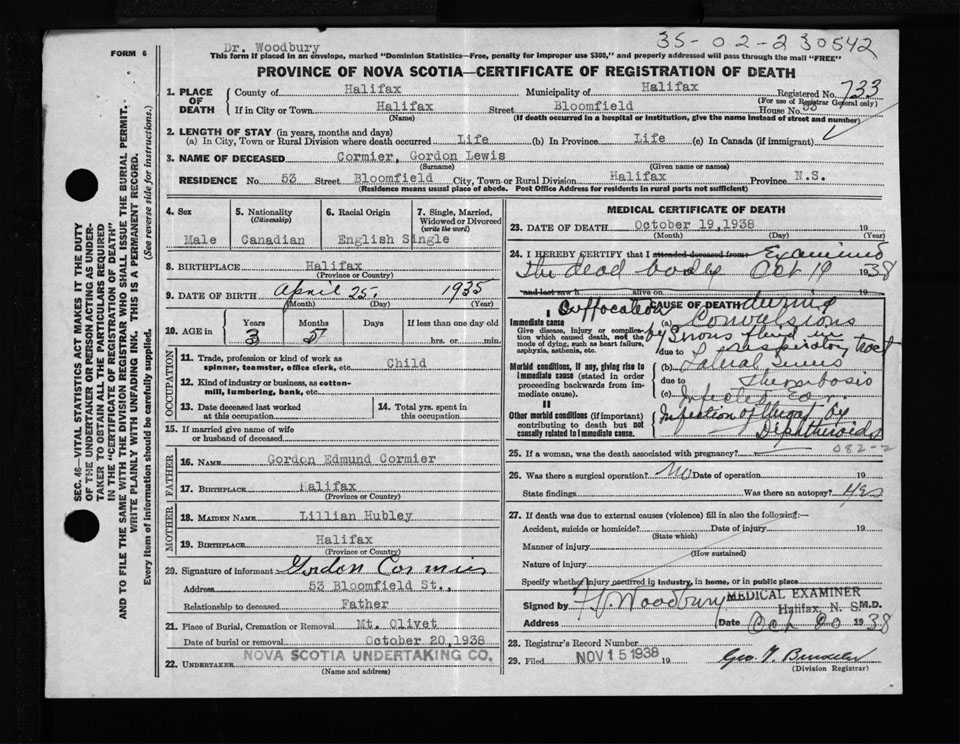 35-02-230542
Dr. Woodbury
FORM 6
This form if placed in an envelope, marked "Dominion Statistics—Free, penalty for improper use $300," and properly addressed will pass through the mail "FREE"
PROVINCE OF NOVA SCOTIA—CERTIFICATE OF REGISTRATION OF DEATH
SEC. 46—VITAL STATISTICS ACT MAKES IT THE DUTY
OF THE UNDERTAKER OR PERSON ACTING AS UNDER-
TAKER TO OBTAIN ALL THE PARTICULARS REQUIRED
IN THE "CERTIFICATE OF REGISTRATION OF DEATH"
AND TO FILE THE SAME WITH THE DIVISION REGISTRAR WHO SHALL ISSUE THE BURIAL PERMIT.
WRITE PLAINLY WITH UNFADING INK. THIS IS A PERMANENT RECORD.
Every item of information should be carefully supplied. (See reverse side for instructions.)
1. PLACE OF DEATH
County of Halifax Municipality of Halifax Registered No. 733
(For use of Registrar General only)
If in City or Town Halifax Street Bloomfield House No. 53
(Name) (If death occurred in a hospital or institution, give the name instead of street and number)
2. LENGTH OF STAY (in years, months and days)
(a) In City, Town or Rural Division where death occurred Life (b) In Province Life (c) In Canada (if immigrant)
3. NAME OF DECEASED Cormier, Gordon Lewis
(Surname) (Given name or names)
RESIDENCE No. 53 Street Bloomfield City, Town or Rural Division Halifax Province N.S.
(Residence means usual place of abode. Post Office Address for residents in rural parts not sufficient)
4. Sex 5. Nationality (Citizenship) 6. Racial Origin 7. Single, Married, Widowed or Divorced (write the word)
Male Canadian English Single
8. BIRTHPLACE Halifax
(Province or Country)
9. DATE OF BIRTH April 25, 1935
(Month) (Day) (Year)
10. AGE in Years Months Days If less than one day old
3 5 hrs. or min.
OCCUPATION
11. Trade, profession or kind of work as
spinner, teamster, office clerk, etc. Child
12. Kind of industry or business, as cotton-
mill, lumbering, bank, etc.
13. Date deceased last worked
at this occupation
14. Total yrs. spent in
this occupation
15. If married give name of wife
or husband of deceased
FATHER
16. NAME Gordon Edmund Cormier
17. BIRTHPLACE Halifax
(Province or Country)
MOTHER
18. MAIDEN NAME Lillian Hubley
19. BIRTHPLACE Halifax
(Province or Country)
20. Signature of informant Gordon Cormier
Address 53 Bloomfield St.,
Relationship to deceased Father
21. Place of Burial, Cremation or Removal Mt. Olivet
Date of burial or removal October 20, 1938
22. UNDERTAKER NOVA SCOTIA UNDERTAKING CO.
(Name and address)
MEDICAL CERTIFICATE OF DEATH
23. DATE OF DEATH October 19, 1938 19
(Month) (Day) (Year)
24. I HEREBY CERTIFY that I attended deceased from Examined
the dead body Oct 19 1938
and last saw h alive on 19
CAUSE OF DEATH
I
Immediate cause
Give disease, injury or complica-
tion which caused death, not the
mode of dying, such as heart failure,
asphyxia, asthenia, etc.
(a) Suffocation during
Convulsions
by Serous fluid in
due to respiratory tract
Morbid conditions, if any, giving rise to
immediate cause (stated in order
proceeding backwards from im-
mediate cause).
(b) Lateral Sinus
due to Thrombosis
(c) Infected Ear.
II
Other morbid conditions (if important)
contributing to death but not
causally related to immediate cause.
Infection of throat by
Diphtheroids
082-2
25. If a woman, was the death associated with pregnancy?
26. Was there a surgical operation? No Date of operation 19
State findings Was there an autopsy? Yes
27. If death was due to external causes (violence) fill in also the following:—
Accident, suicide or homicide? Date of injury 19
(State which)
Manner of injury
(How sustained)
Nature of injury
Specify whether injury occurred in industry, in home, or in public place
Signed by Woodbury MEDICAL EXAMINER M.D.
Halifax, N. S.
Address Date Oct 20 1938
28. Registrar's Record Number
29. Filed NOV 15 1938 19
(Division Registrar)